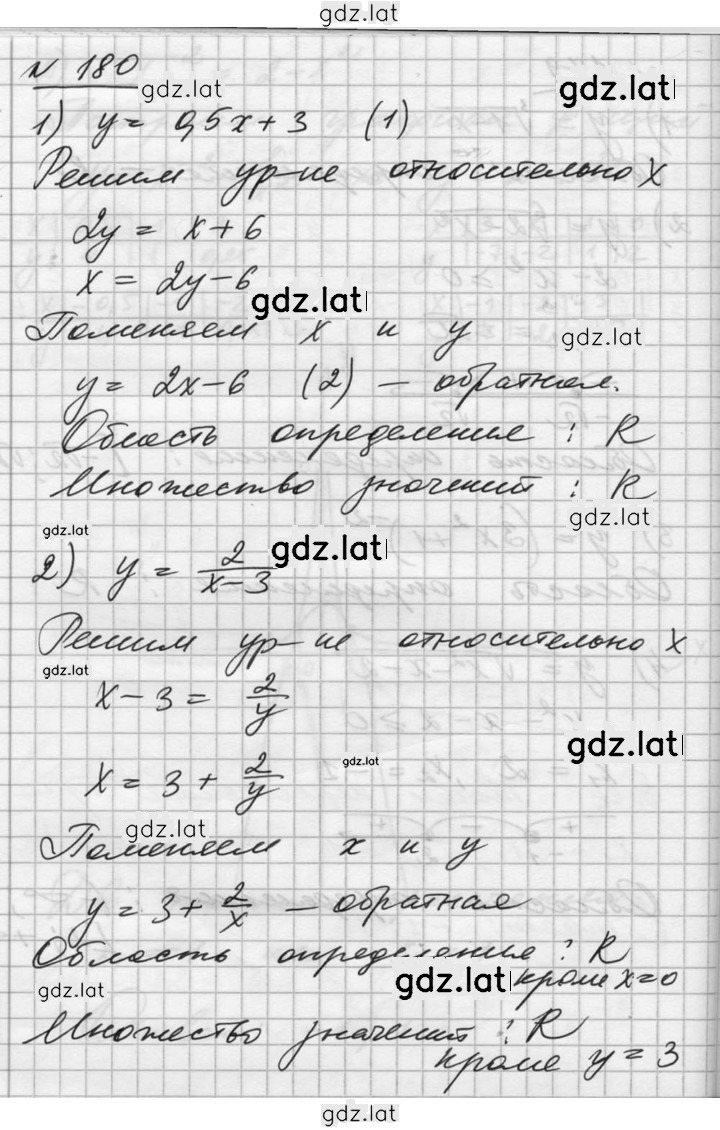 gdz.lat
N 180
gdz.lat
gdz.lat
1) y = 0,5x + 3 (1)
Решим ур-ие относительно x
2y = x + 6
x = 2y - 6
gdz.lat
Поменяем x и y
gdz.lat
y = 2x - 6 (2) - обратная.
Область определения : R
Множество значений : R
gdz.lat
gdz.lat
gdz.lat
2) y = 2/(x-3)
Решим ур-ие относительно x
gdz.lat
x - 3 = 2/y
gdz.lat
gdz.lat
x = 3 + 2/y
gdz.lat
Поменяем x и y
y = 3 + 2/x - обратная
Область определения : R
кроме x=0
gdz.lat
gdz.lat
Множество значений : R
кроме y = 3
gdz.lat